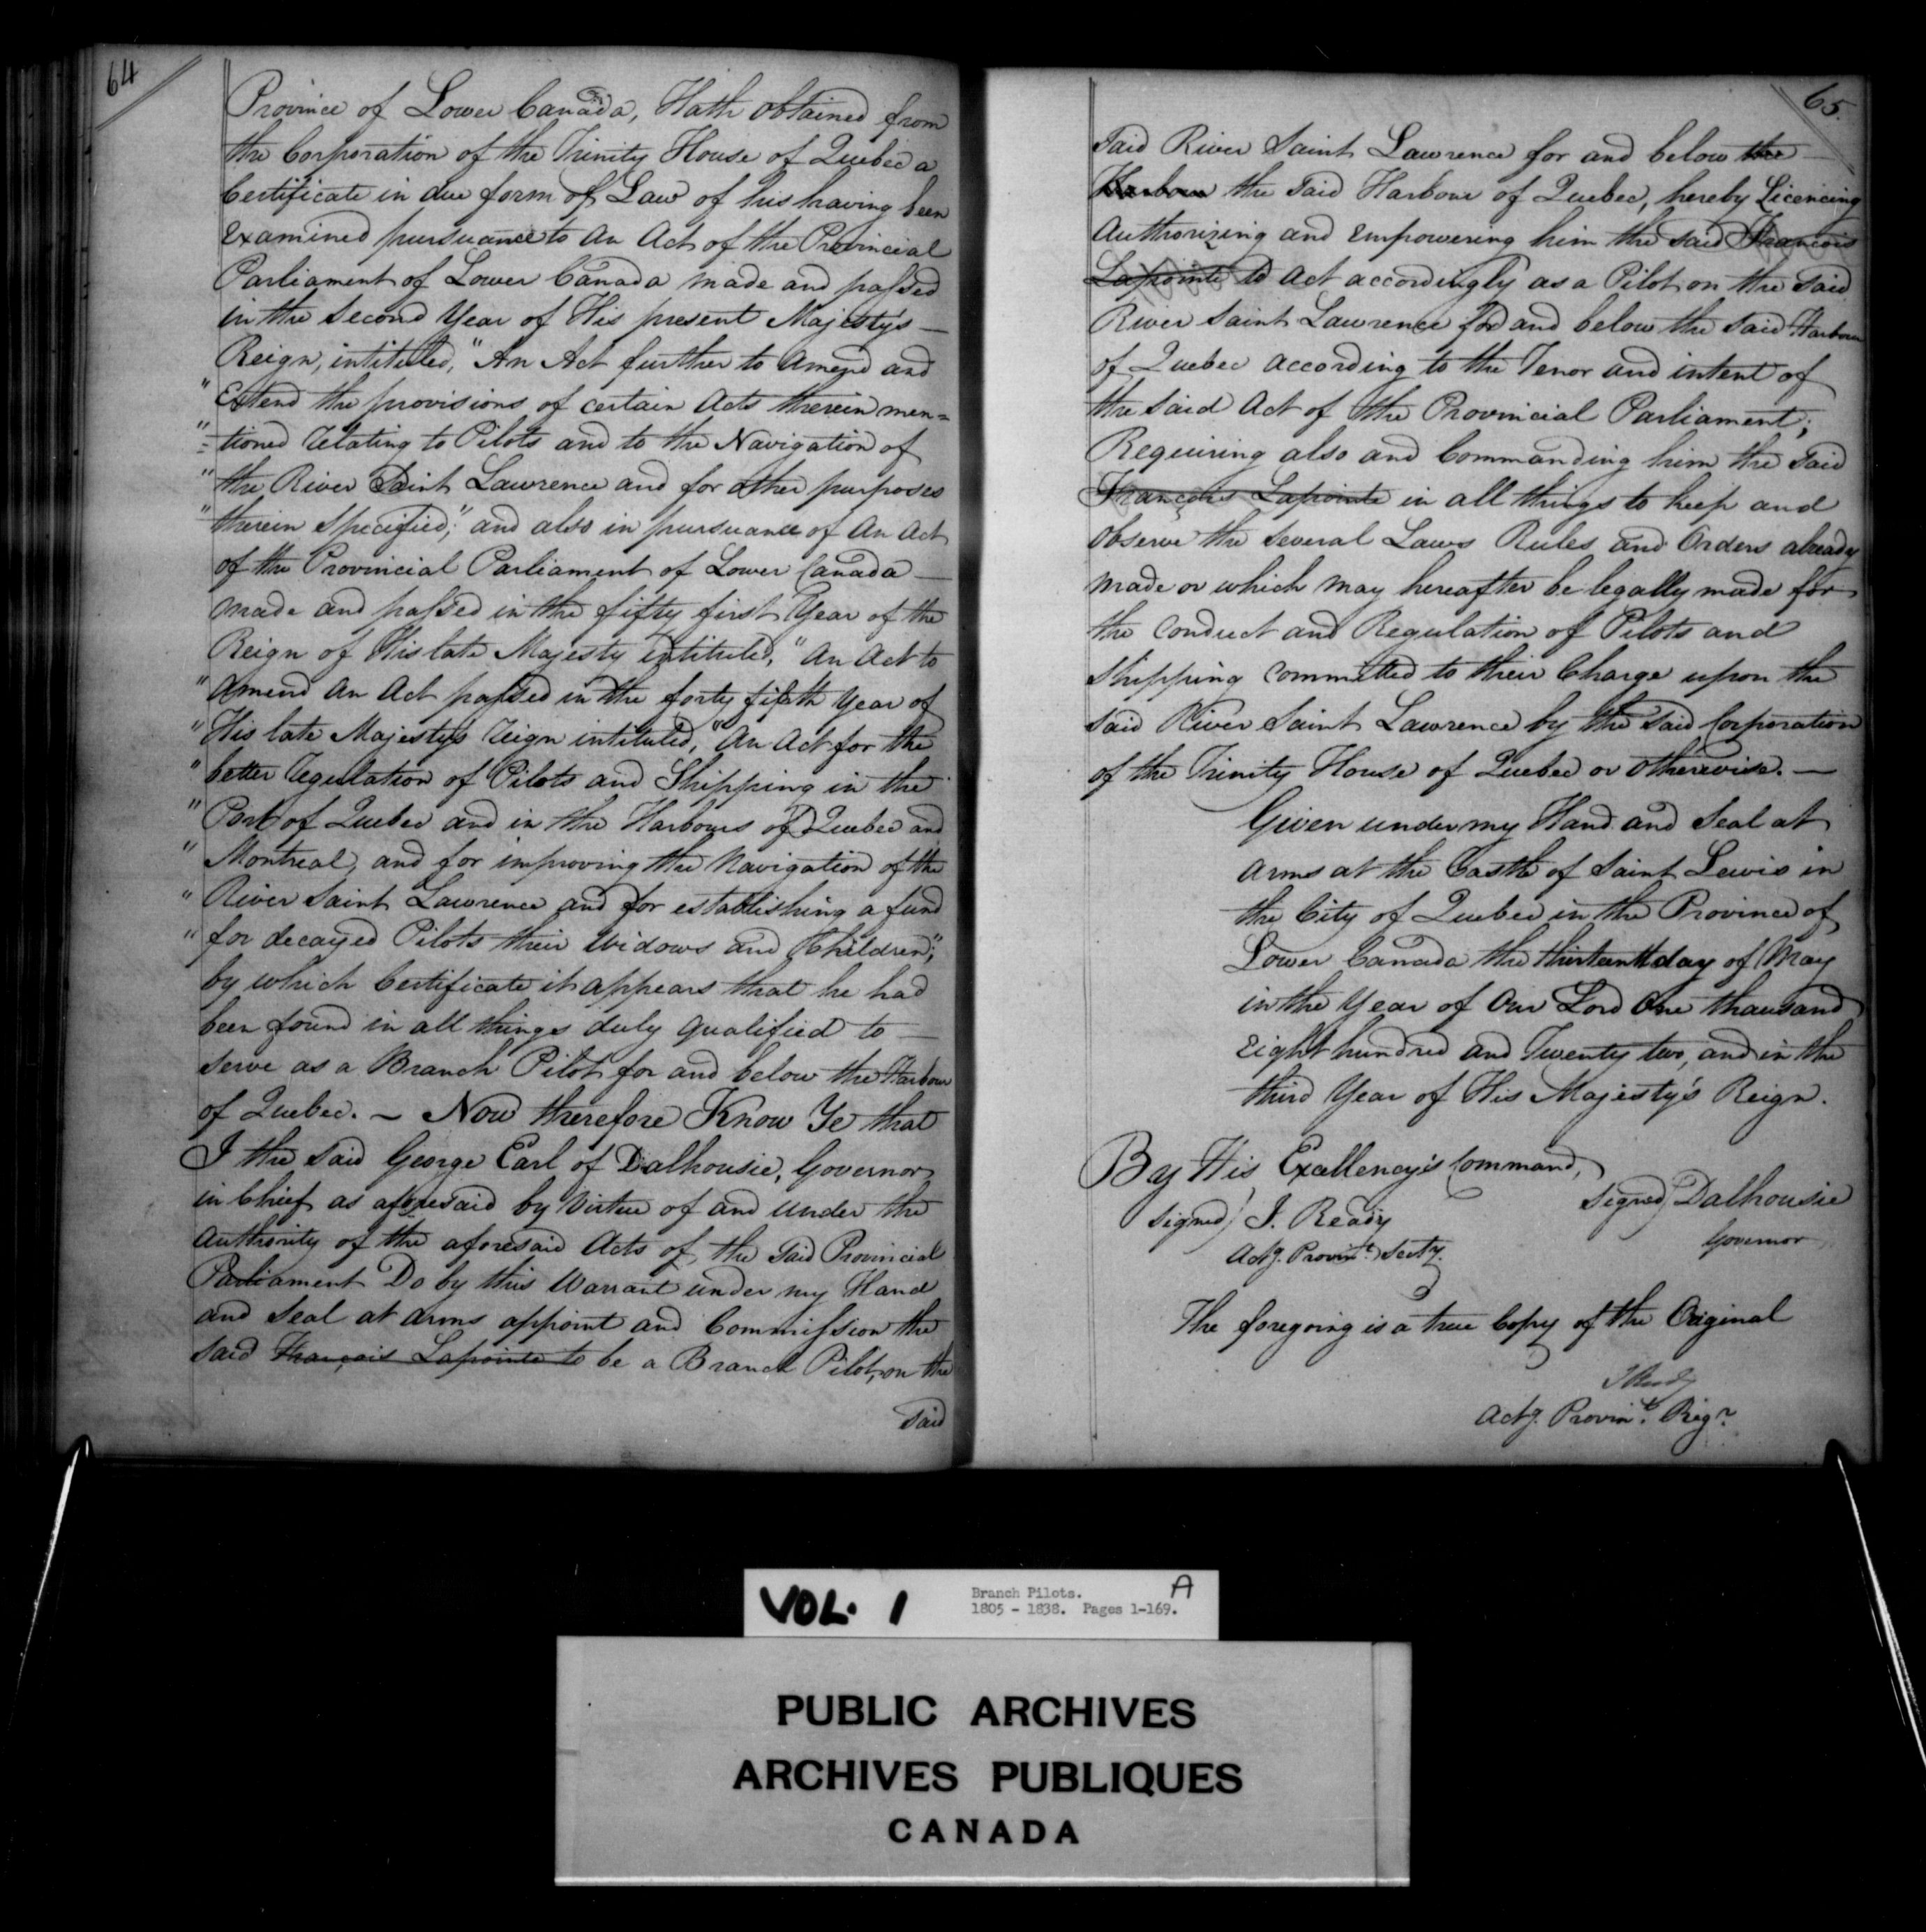 64
Province of Lower Canada, Hath obtained from
the Corporation of the Trinity House of Quebec a
Certificate in due form of Law of his having been
Examined pursuance to An Act of the Provincial
Parliament of Lower Canada made and passed
in the Second Year of His present Majesty's —
Reign, intituled, "An Act further to Amend and
" Extend the provisions of certain Acts therein men=
" =tioned relating to Pilots and to the Navigation of
" the River Saint Lawrence and for other purposes
" therein specified;" and also in pursuance of An Act
of the Provincial Parliament of Lower Canada —
made and passed in the fifty first Year of the
Reign of His late Majesty intituled, "An Act to
" Amend An Act passed in the forty fifth Year of
" His late Majesty's reign intituled, "An Act for the
" better regulation of Pilots and Shipping in the
" Port of Quebec and in the Harbours of Quebec and
" Montreal, and for improving the Navigation of the
" River Saint Lawrence and for establishing a fund
" for decayed Pilots their Widows and Children;"
by which Certificate it appears that he had
been found in all things duly qualified to —
serve as a Branch Pilot for and below the Harbour
of Quebec. — Now therefore Know Ye that
I the said George Earl of Dalhousie, Governor
in Chief as aforesaid by Virtue of and under the
Authority of the aforesaid Acts of the said Provincial
Parliament Do by this Warrant under my Hand
and Seal at Arms appoint and Commission the
said François Lapointe to be a Branch Pilot, on the
said
65.
said River Saint Lawrence for and below the —
Harbour the said Harbour of Quebec, hereby Licencing
Authorizing and Empowering him the said François
Lapointe to Act accordingly as a Pilot on the said
River Saint Lawrence for and below the said Harbour
of Quebec according to the Tenor and intent of
the said Act of the Provincial Parliament;
Requiring also and Commanding him the said
François Lapointe in all things to keep and
Observe the several Laws Rules and Orders already
made or which may hereafter be legally made for
the Conduct and Regulation of Pilots and
Shipping Committed to their Charge upon the
said River Saint Lawrence by the said Corporation
of the Trinity House of Quebec or Otherwise. —
Given under my Hand and Seal at
Arms at the Castle of Saint Lewis in
the City of Quebec in the Province of
Lower Canada the thirteenth day of May
in the Year of Our Lord One thousand
Eight hundred and Twenty two, and in the
third Year of His Majesty's Reign.
By His Excellency's Command,
signed) Dalhousie
signed) J. Ready
Governor
Actg. Provinl. Secty.
The foregoing is a true Copy of the Original
J Ready
Actg. Provinl. Regr.
VOL. 1
Branch Pilots.
1805 - 1838. Pages 1-169.
A
PUBLIC ARCHIVES
ARCHIVES PUBLIQUES
CANADA